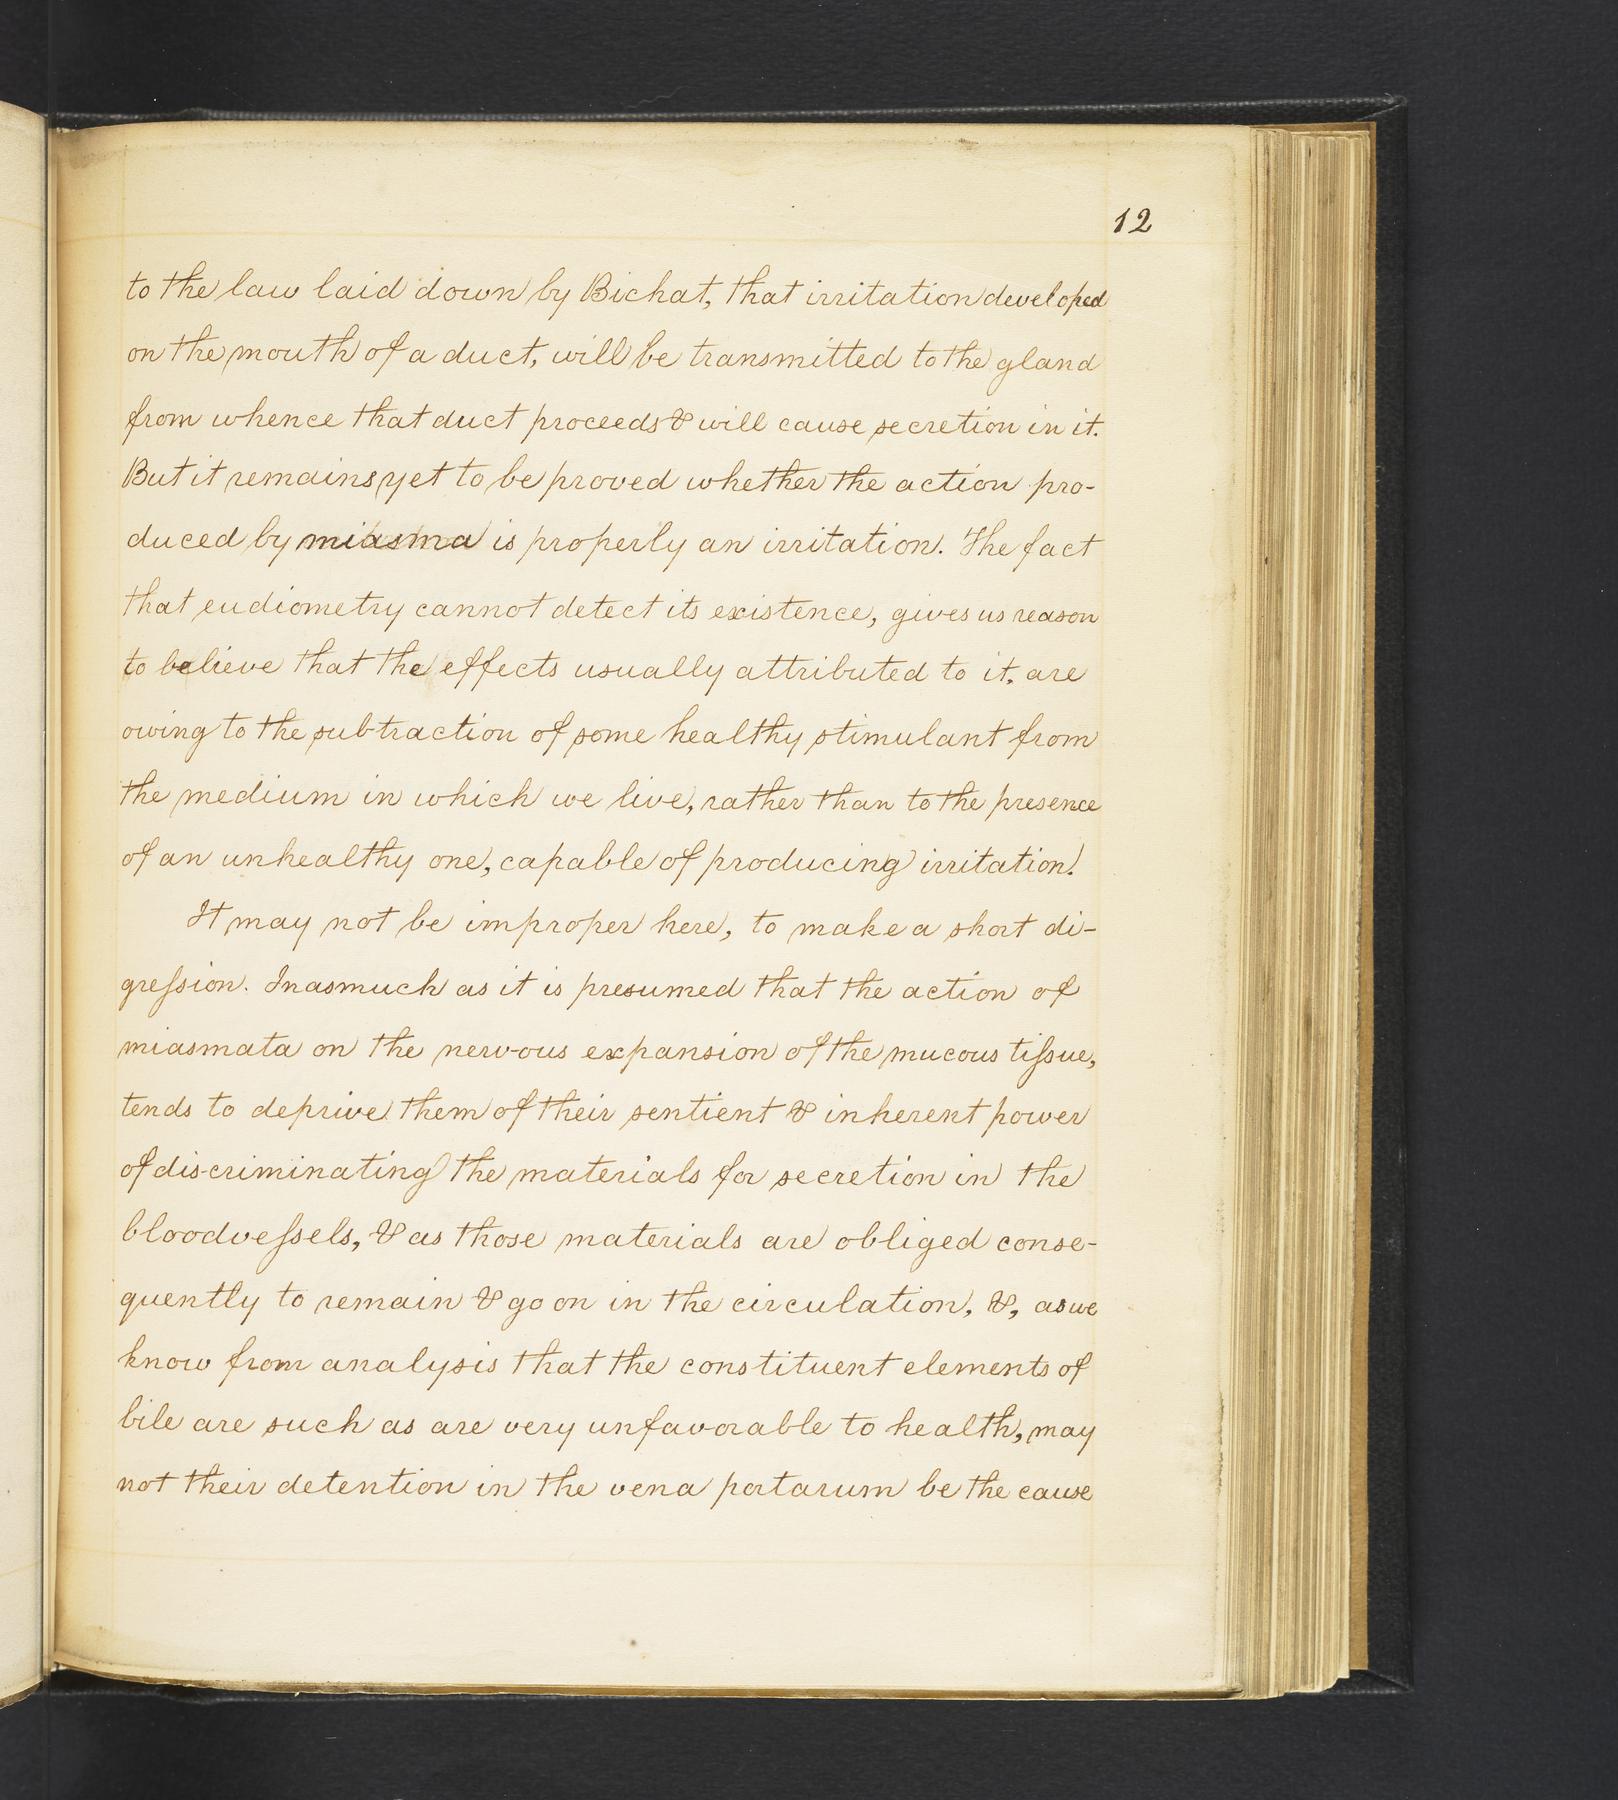 12
to the law laid down by Bichat, that irritation developed
on the mouth of a duct, will be transmitted to the gland
from whence that duct proceeds & will cause secretion in it.
But it remains yet to be proved whether the action pro-
duced by miasma is properly an irritation. The fact
that eudiometry cannot detect its existence, gives us reason
to believe that the effects usually attributed to it, are
owing to the subtraction of some healthy stimulant from
the medium in which we live, rather than to the presence
of an unhealthy one, capable of producing irritation!
It may not be improper here, to make a short di-
greſsion. Inasmuch as it is presumed that the action of
miasmata on the nervous expansion of the mucous tiſsue,
tends to deprive them of their sentient & inherent power
of discriminating the materials for secretion in the
bloodveſsels, & as those materials are obliged conse-
quently to remain & go on in the circulation, &, as we
know from analysis that the constituent elements of
bile are such as are very unfavorable to health, may
not their detention in the vena portarum be the cause